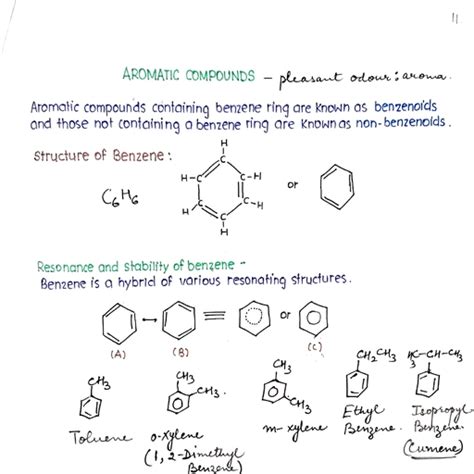 11
AROMATIC COMPOUNDS – pleasant odour : aroma.
Aromatic compounds containing benzene ring are known as benzenoids
and those not containing a benzene ring are known as non-benzenoids.
Structure of Benzene :
C6H6
H
H-C C C-H
or
H C C C-H
H
Resonance and stability of benzene -
Benzene is a hybrid of various resonating structures.
or
(A) (B) (C)
CH3 CH3 CH3 CH3 CH3 CH2CH3 H3C-CH-CH3
Toluene o-xylene m-xylene Ethyl Benzene. Isopropyl Benzene
(1, 2-Dimethyl Benzene) (Cumene)